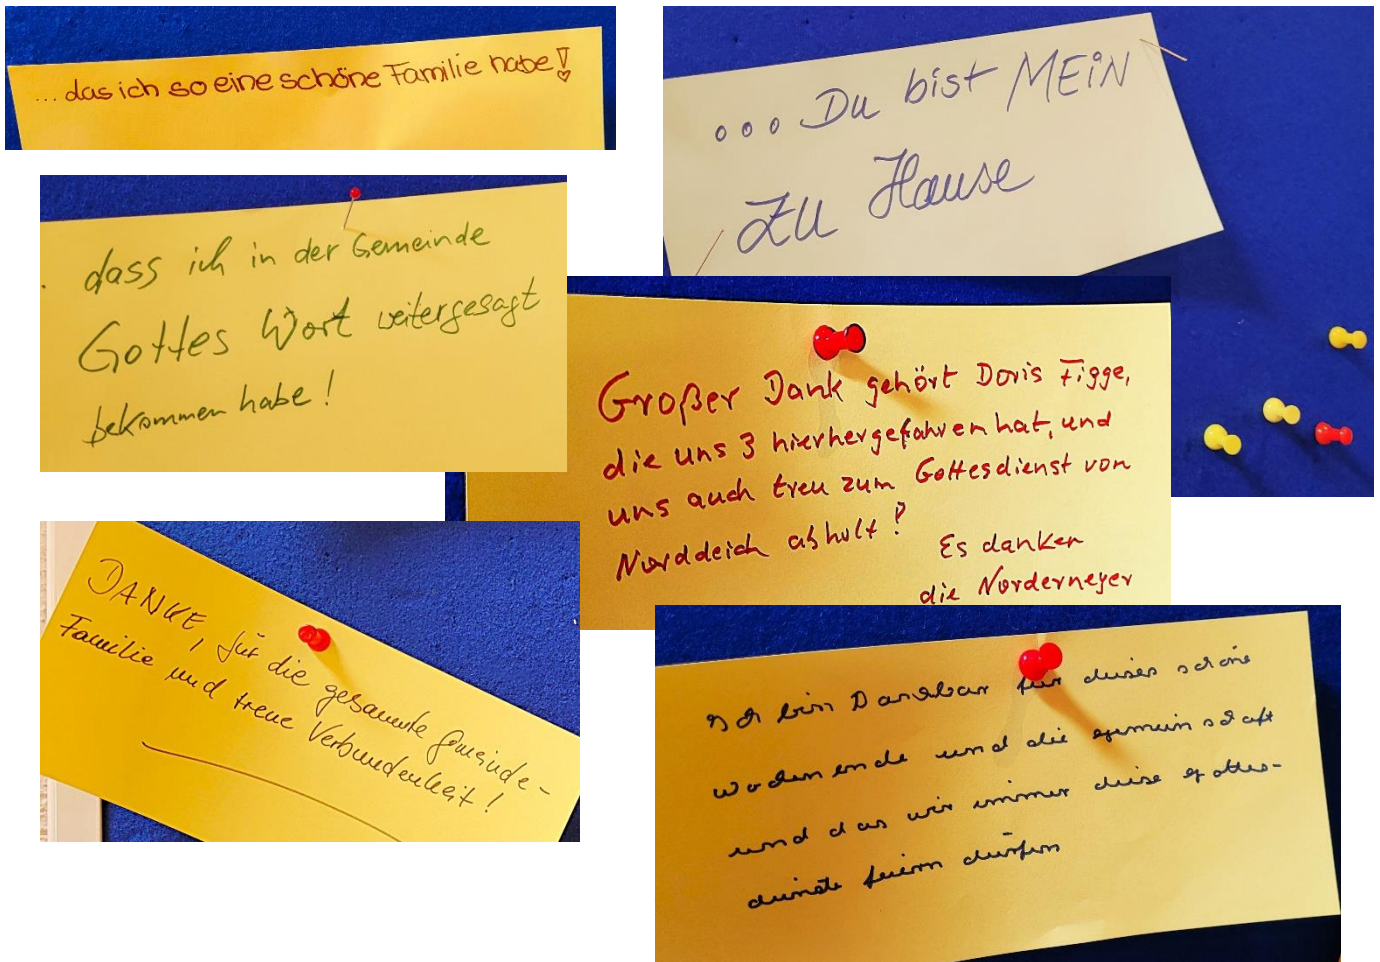 ... das ich so eine schöne Familie habe!
... Du bist MEiN
ZU Hause
. dass ich in der Gemeinde
Gottes Wort weitergesagt
bekommen habe!
Großer Dank gehört Doris Figge,
die uns 3 hierhergefahren hat, und
uns auch treu zum Gottesdienst von
Norddeich abholt!
Es danken
die Norderneyer
DANKE, für die gesamte Gemeinde-
Familie und treue Verbundenheit!
Ich bin Dankbar für dieses schöne
wochenende und die gemeinschaft
und das wir immer diese gottes-
dinste feiern dürfen